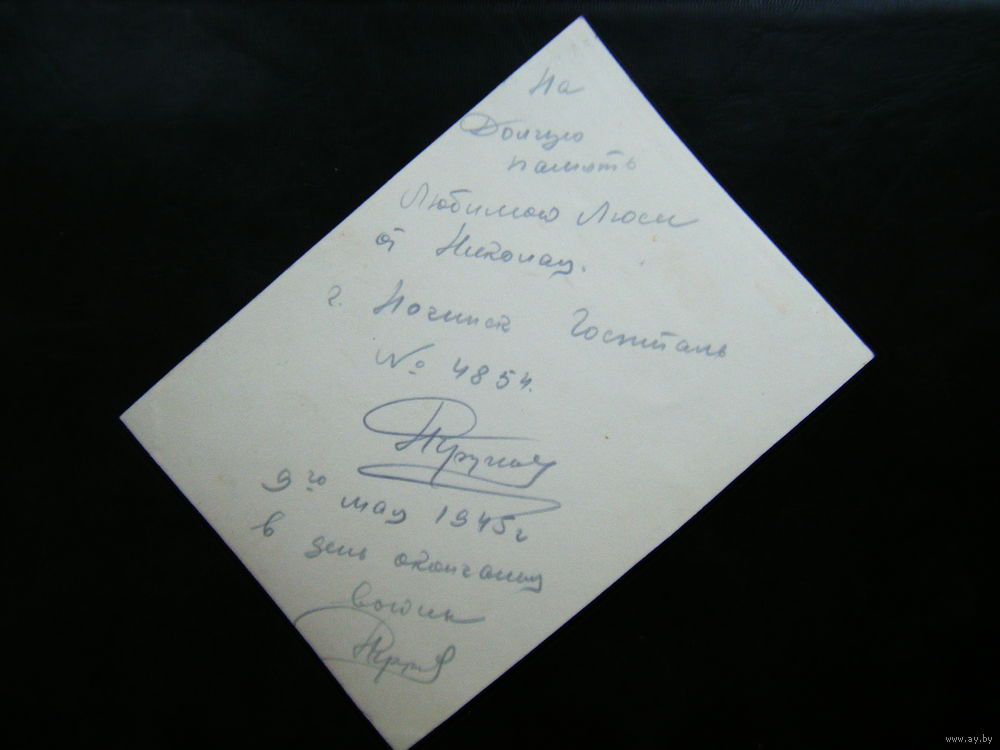 На
Долгую
память
Любимою Люси
от Николая.
г. Ногинск Госпиталь
№ 4854.
9го мая 1945г
в день окончания
войны
www.ay.by